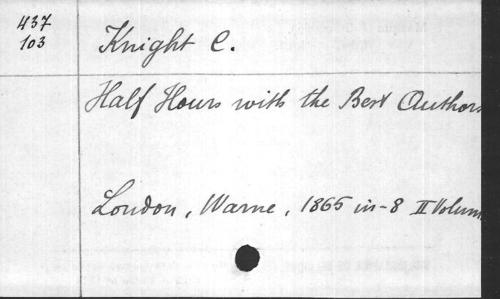 437
103
Knight C.
Half Hours with the Best Authors
London, Warne, 1865 in-8 II Volum